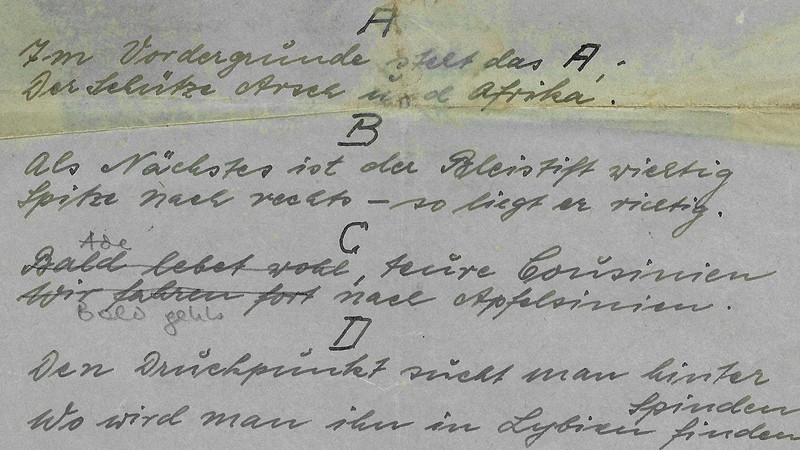 A
Im Vordergrunde steht das A,
Der Schütze Arsch und Afrika.
B
Als Nächstes ist der Bleistift wichtig
Spitze nach rechts – so liegt er richtig.
C
Ade
Bald lebet wohl, teure Cousinien
Wir fahren fort nach Apfelsinien.
Bald gehts
D
Den Druckpunkt sucht man hinter
Spinden
Wo wird man ihn in Lybien finden